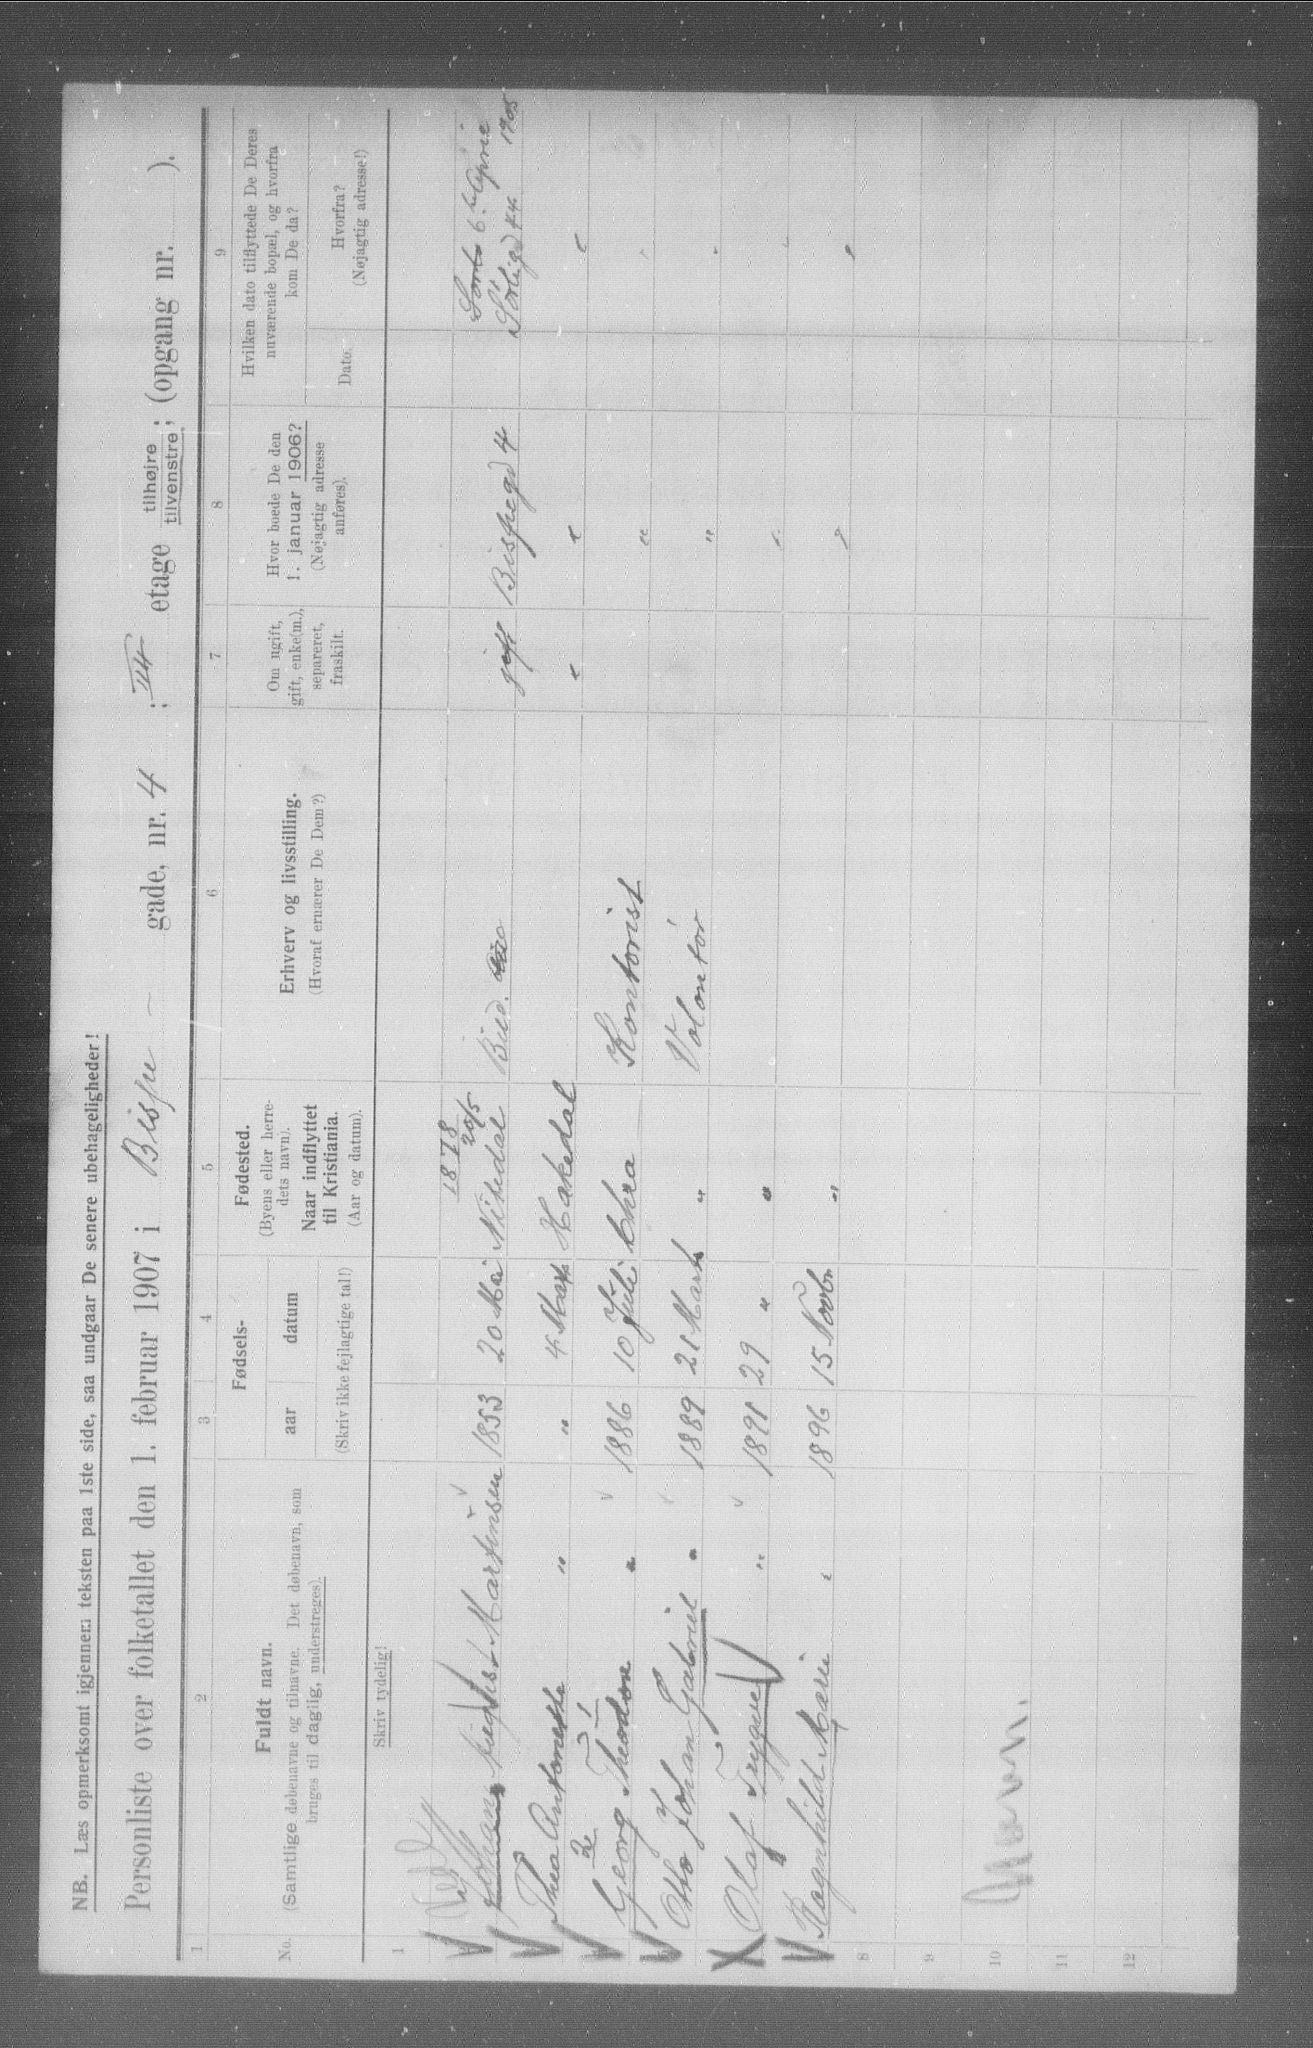 NB. Læs opmerksomt igjennem teksten paa 1ste side, saa undgaar De senere ubehageligheder!
Personliste over folketallet den 1. februar 1907 i Bispe — gade, nr. 4 ; III etage tilhøjre tilvenstre ; (opgang nr. ).
1
2
3
4
5
6
7
8
9
No.
Fuldt navn.
(Samtlige døbenavne og tilnavne. Det døbenavn, som
bruges til daglig, understreges).
Skriv tydelig!
Fødsels-
aar
datum
(Skriv ikke fejlagtige tal!)
Fødested.
(Byens eller herre-
dets navn).
Naar indflyttet
til Kristiania.
(Aar og datum).
Erhverv og livsstilling.
(Hvoraf ernærer De Dem?)
Om ugift,
gift, enke(m.),
separeret,
fraskilt.
Hvor boede De den
1. januar 1906?
(Nøjagtig adresse
anføres).
Hvilken dato tilflyttede De Deres
nuværende bopæl, og hvorfra
kom De da?
Dato.
Hvorfra?
(Nøjagtig adresse!)
1
1878 20/5
6 April 1905
Johan August Martinsen 1853 20 Mai Nitedal Bud. gift Bispegd 4 Sørligd 44
Thea Antonette " " 4 Marts Hakedal " " "
Georg Theodor " 1886 10 Juli Chra Kontorist " "
Otto Johan Gabriel " 1889 21 Marts " Volontör " "
Olaf Trygve " 1891 29 " " " "
Ragnhild Marie " 1896 15 Novbr " " "
8
9
10
11
12